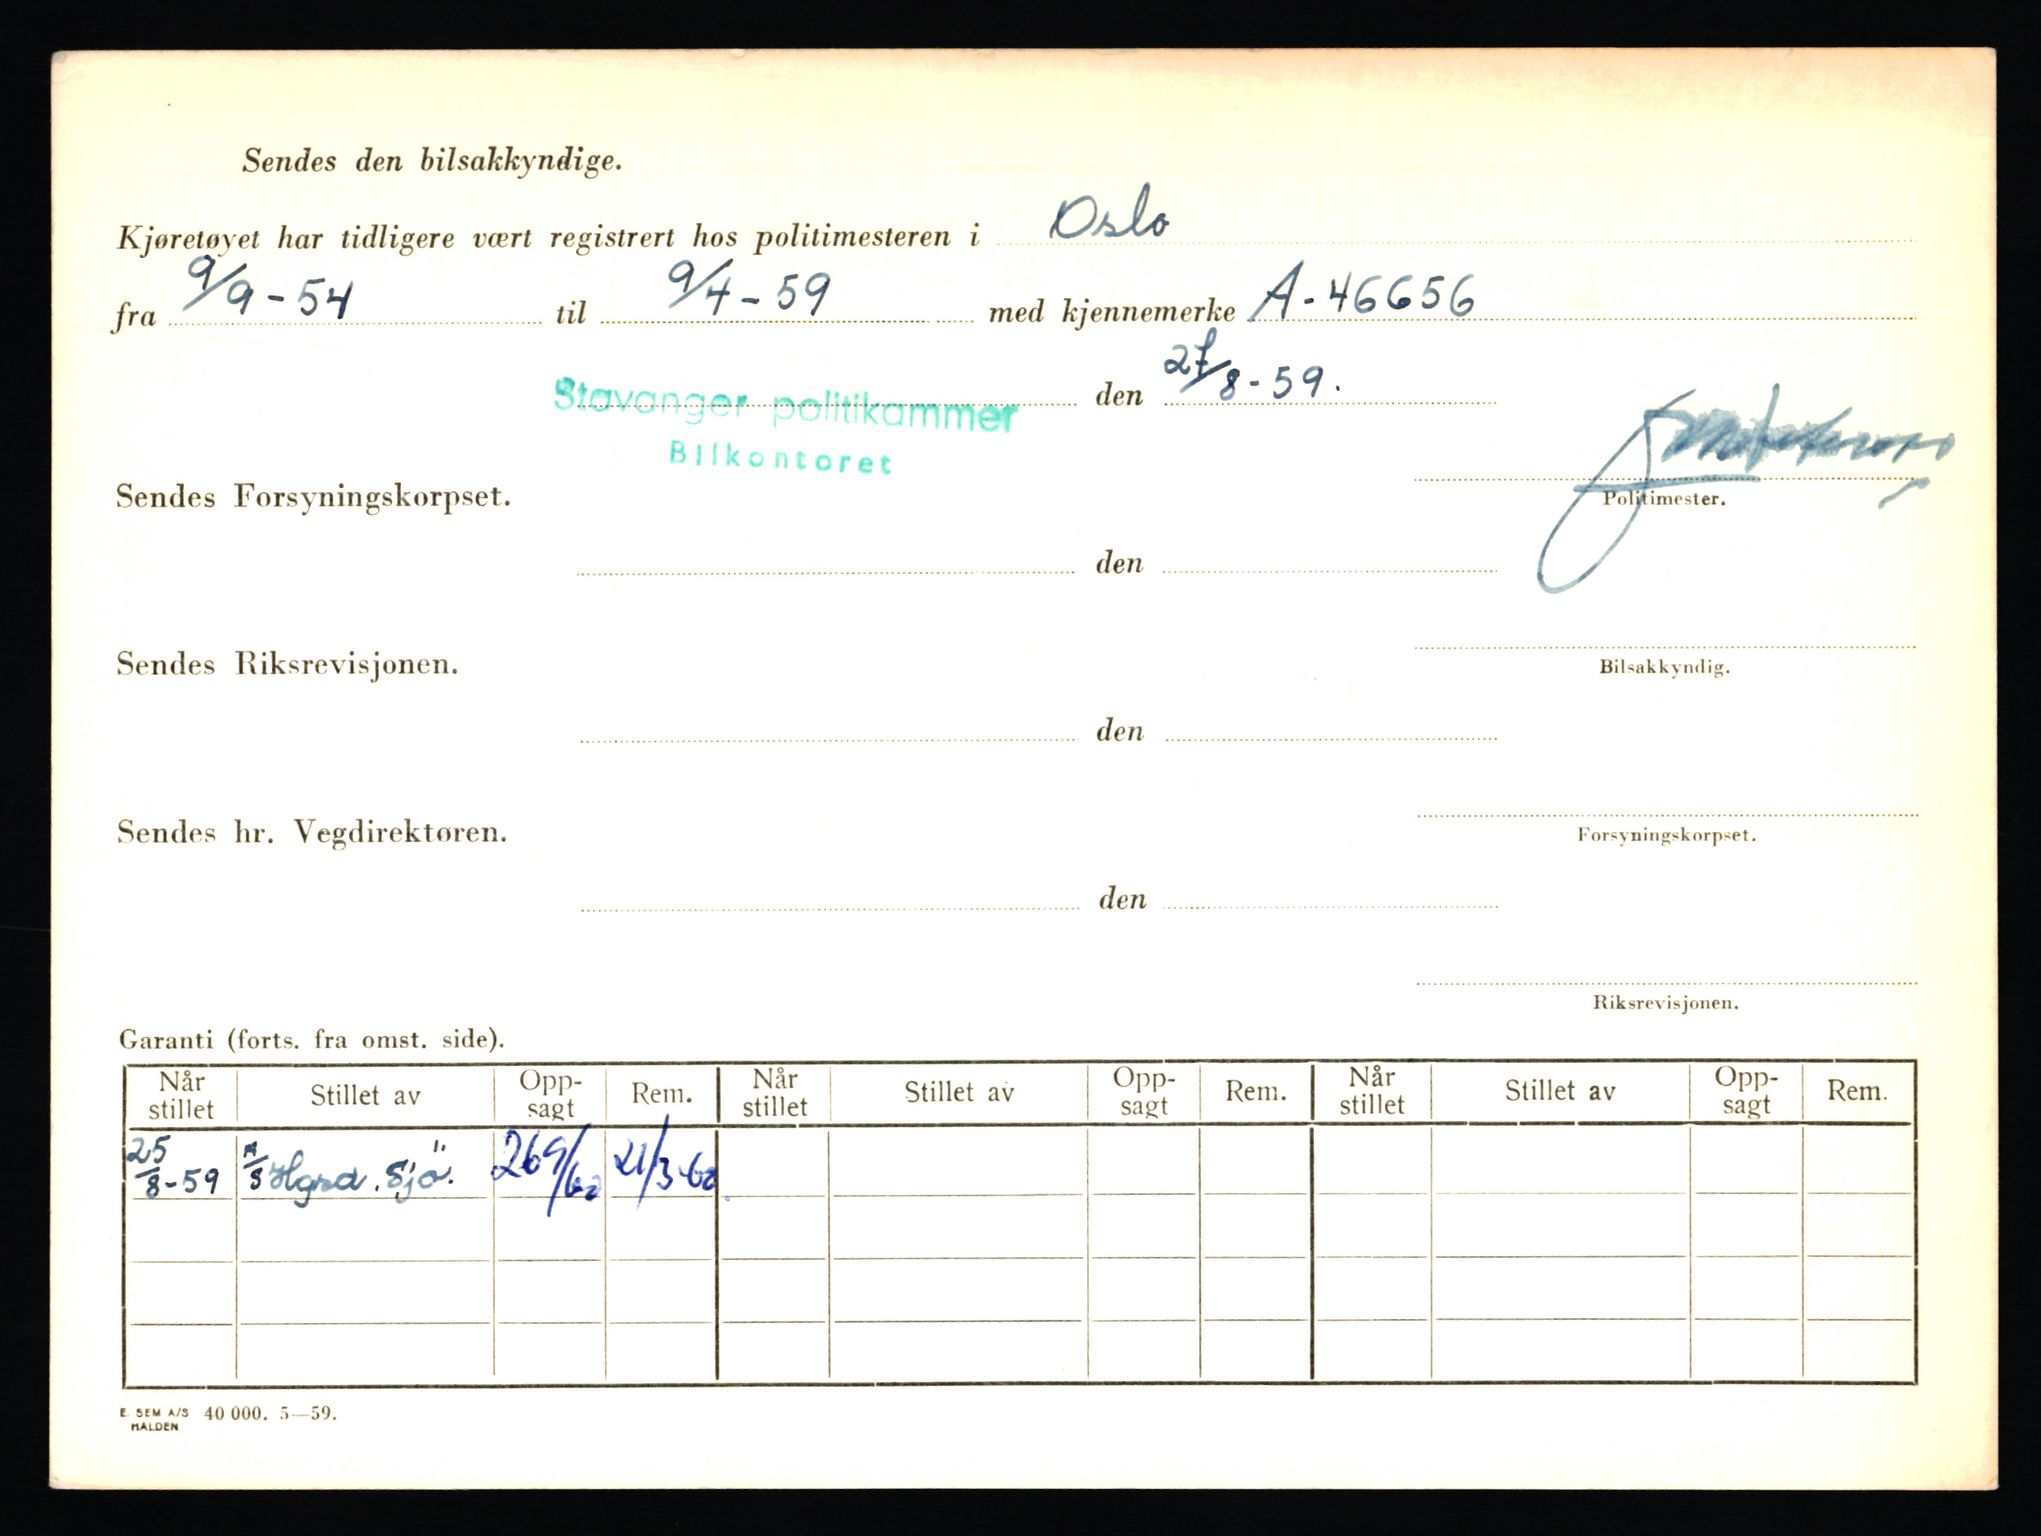 Sendes den bilsakkyndige.
Kjøretøyet har tidligere vært registrert hos politimesteren i Oslo
fra 9/9-54 til 9/4-59 med kjennemerke A-46656
Stavanger politikammer den 27/8-59.
Bilkontoret
Sendes Forsyningskorpset.
Politimester.
den
Sendes Riksrevisjonen.
Bilsakkyndig.
den
Sendes hr. Vegdirektøren.
Forsyningskorpset.
den
Riksrevisjonen.
Garanti (forts. fra omst. side).
Når stillet Stillet av Opp-sagt Rem. Når stillet Stillet av Opp-sagt Rem. Når stillet Stillet av Opp-sagt Rem.
25/8-59 A/S Sjö. 269/60 21/3-60
E. SEM A/S 40 000. 5—59.
HALDEN